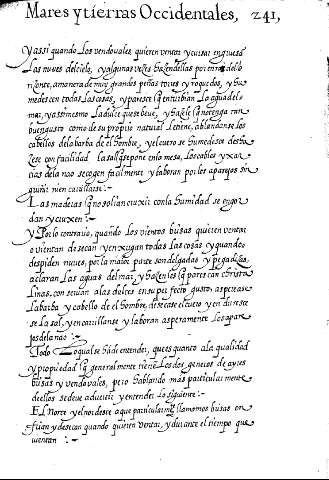 Mares y tierras Occidentales, 241,
Y assi quando Los vendouales, quieren ventar y cursar engruesa
Las nuues delcielo, y algunas vezes hazendellas por encima del o
rizonte, amanera de muy grandes peñas torres y roquedos, y hu
medescen todas Las cosas, y paresce q̃ enturbian La agua dela
mar, y asimesmo La dulce que se beue, y hazele q̃ no tenga tan
buen gusto como de su propio natural Le tiene, ablandanse los
cabellos dela barba de el hombre, y el cuero se humedesce desha
zese con facilidad la sal q̃ se pone en la mesa, Los cables y xar
cias dela nao se cogen facilmente y laboran por los aparejos sin
ni en carrillarse:~
Las maderas q̃ no solian cruxir con la humidad se engor
dan y cruxen:~
Y Por lo contrario, quando Los vientos busas quieren ventar
o vientan desecan y enxugan todas Las cosas y quando
despiden nuues, por la maior parte son delgadas y pegadizas,
aclaran Las aguas del mar, y hazenles q̃ parescan christa
Linas, conseruan alas dolces en su perfecto gusto, asperease
La barba y cabello de el hombre, desecase el cuero y en duresce
se La sal, y en carrillanse y laboran asperamente Los apare
jos dela nao:~
Todo Lo qual se ha de entender, que es quanto ala qualidad
y propiedad q̃ generalmente tiene Los dos generos de ayres
busas y vendouales, pero hablando mas particularmente
de ellos se deue aduertir y entender Lo siguiente:~
El Norte y el nordeste a que particularmẽ llamamos busas en
frian y desecan quando quieren ventar, y durante el tiempo que
vientan:~